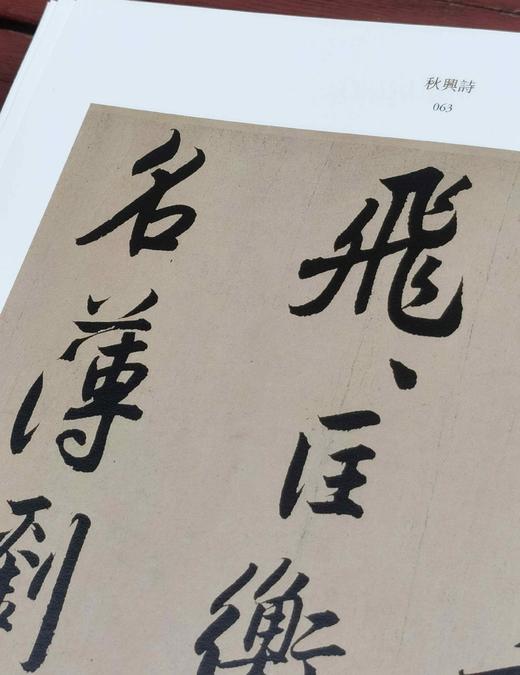 秋興詩
063
飛〻匡衡
名薄劉